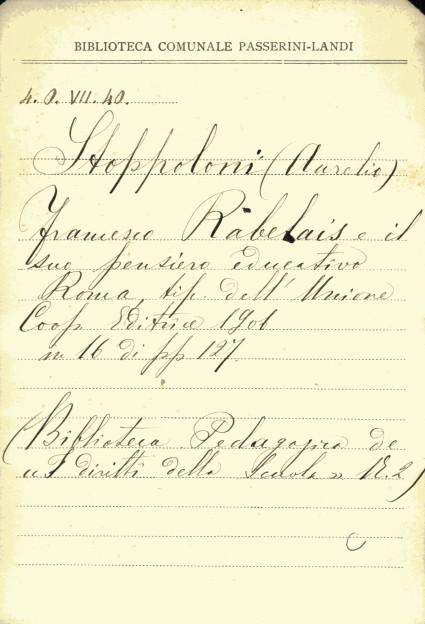 BIBLIOTECA COMUNALE PASSERINI-LANDI
4. O. VII. 40.
Stoppoloni (Aurelio)
Francesco Rabelais e il
suo pensiero educativo
Roma, tip. dell' Unione
Coop. Editrice 1906
in 16 di pp 127.
(Biblioteca Pedagogica de
"I diritti della Scuola" N. 2)